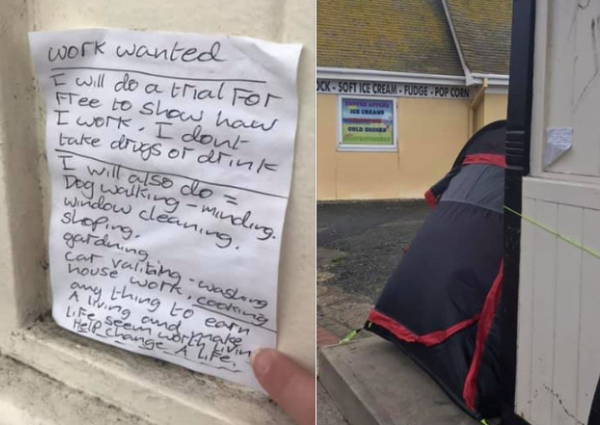 work wanted
I will do a trial For
Free to show how
I work. I dont
take drugs or drink
I will also do =
Dog walking - minding.
window cleaning.
shoping.
gardning
car valiting - washing
house work, cooking
any thing to earn
A living and make
Life seem worth livin
Help change A Life.
CK - SOFT ICE CREAM - FUDGE - POP CORN
ICE CREAMS
COLD DRINKS